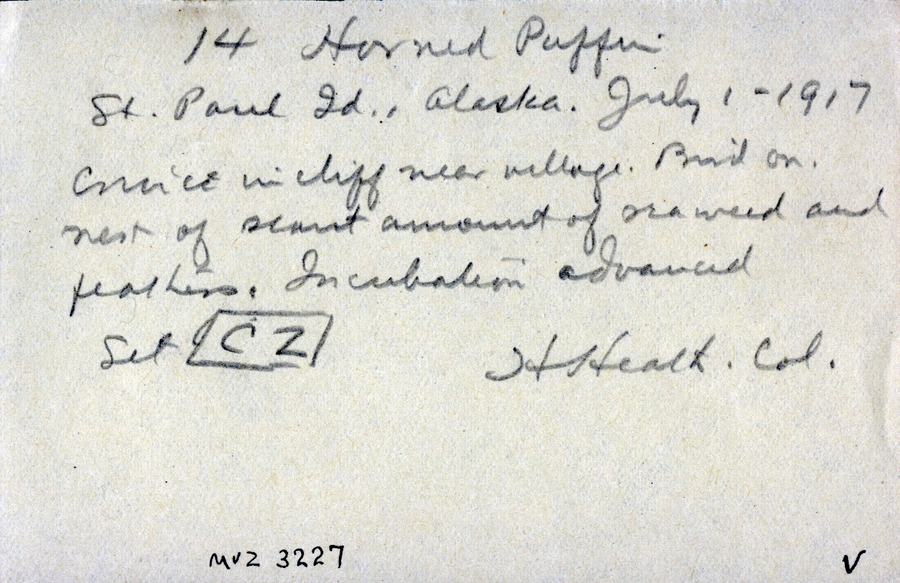 14 Horned Puffin
St. Paul Id., Alaska. July 1-1917
Crevice in cliff near village. Bird on.
nest of scant amount of seaweed and
feathers. Incubation advanced
Set C2 H Heath. Col.
MVZ 3227 V